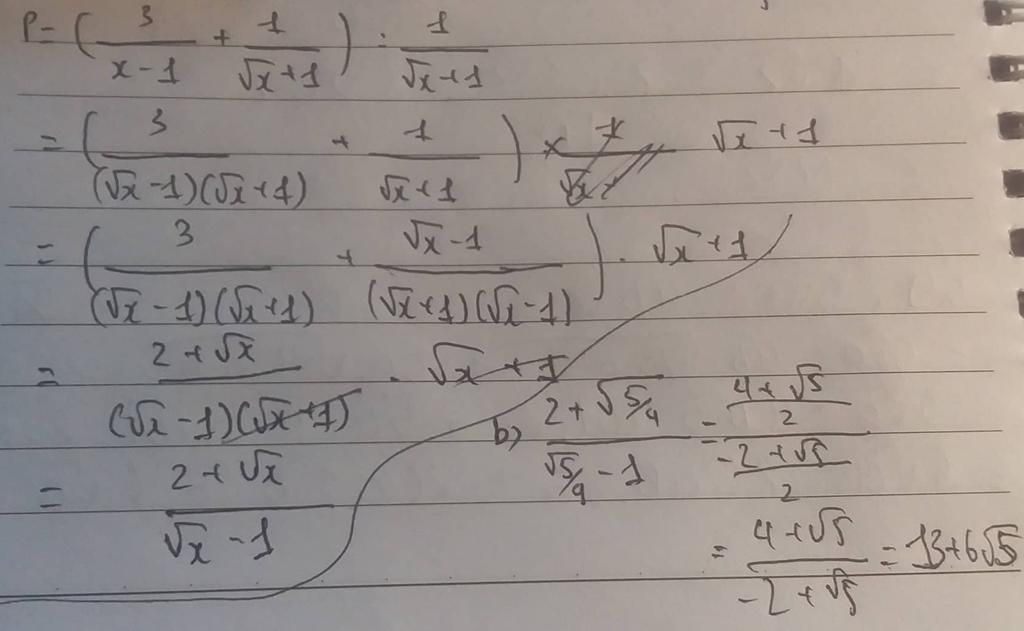 P = ( 3/(x-1) + 1/(√x+1) ) : 1/(√x+1)
= ( 3/((√x-1)(√x+1)) + 1/(√x+1) ) × √x+1
= ( 3/((√x-1)(√x+1)) + (√x-1)/((√x+1)(√x-1)) ) . √x+1
= (2+√x)/((√x-1)(√x+1)) . √x+1
= (2+√x)/(√x-1)
b) (2+√5/4)/(√5/4-1) = ((4+√5)/2)/((-2+√5)/2)
= (4+√5)/(-2+√5) = 13+6√5